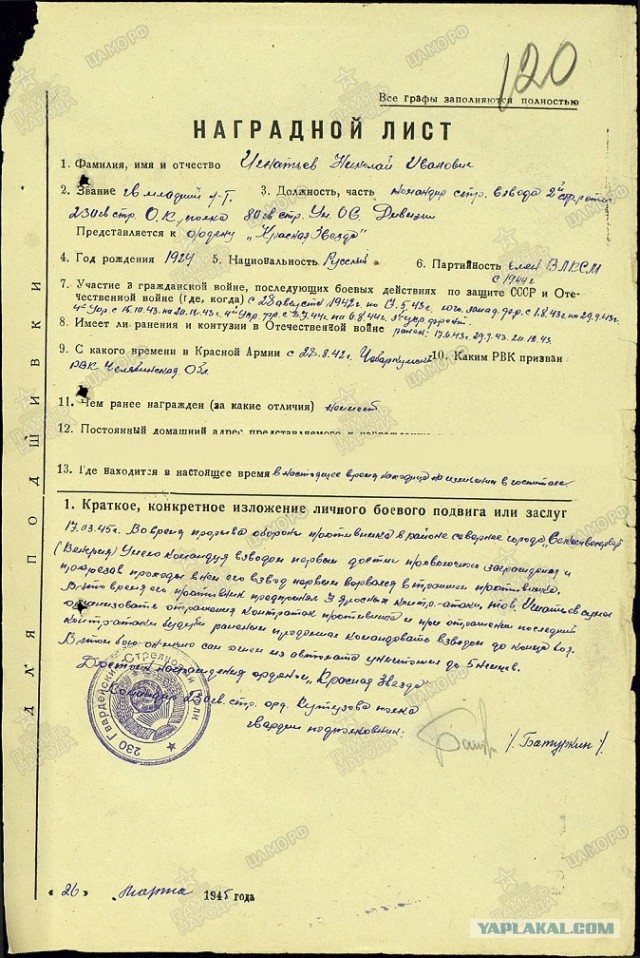 120
Все графы заполняются полностью
НАГРАДНОЙ ЛИСТ
1. Фамилия, имя и отчество Игнатьев Николай Иванович
2. Звание гв младший л-т. 3. Должность, часть командир стр. взвода 2й стр роты
230 гв стр. О.К. полка 80 гв стр. Ум. ОС. Дивизии
Представляется к ордену „Красная Звезда"
4. Год рождения 1924 5. Национальность Русский 6. Партийность член ВЛКСМ
с 1944г
7. Участие в гражданской войне, последующих боевых действиях по защите СССР и Оте-
чественной войне (где, когда) с 28 августа 1942г по 17.5.43г. юго. запад. фр. с 1.8.43г по 29.9.43г.
4й Укр. с 16.10.43 по 20.10.43г. 4й Укр. фр. по 6.8.44г. 3й укр. фронт.
8. Имеет ли ранения и контузии в Отечественной войне ранен: 17.5.43г. 29.9.43. 20.10.43.
9. С какого времени в Красной Армии с 28.8.42г. Чебаркульским 10. Каким РВК призван
РВК Челябинской Обл.
11. Чем ранее награжден (за какие отличия) не имеет
12. Постоянный домашний адрес представляемого к награждению
13. Где находится в настоящее время в настоящее время находится на излечении в госпитале.
1. Краткое, конкретное изложение личного боевого подвига или заслуг
17.03.45г. Во время прорыва обороны противника в районе севернее города „Секешфехервар"
(Венгрия) Умело командуя взводом первым достиг проволочного заграждения и
прорезав проходы в нем его взвод первым ворвался в траншеи противника.
В это время противник предпринял 3 яросных контр-атаки, тов. Игнатьев сумел
организовать отражения контратак противника и при отражении последний
контратаки будучи раненым продолжал командовать взводом до конца боя.
В этом бою он лично сам огнем из автомата уничтожил до 5 немцев.
Достоин награждения орденом „Красная Звезда"
Командир 230 гв. стр. орд. Кутузова полка
гвардии подполковник: /. Батужин /.
230 Гвардейский Стрелковый полк
ДЛЯ ПОДШИВКИ
« 26 » марта 1945 года
ЦАМО РФ
ПАМЯТЬ НАРОДА
YAPLAKAL.COM